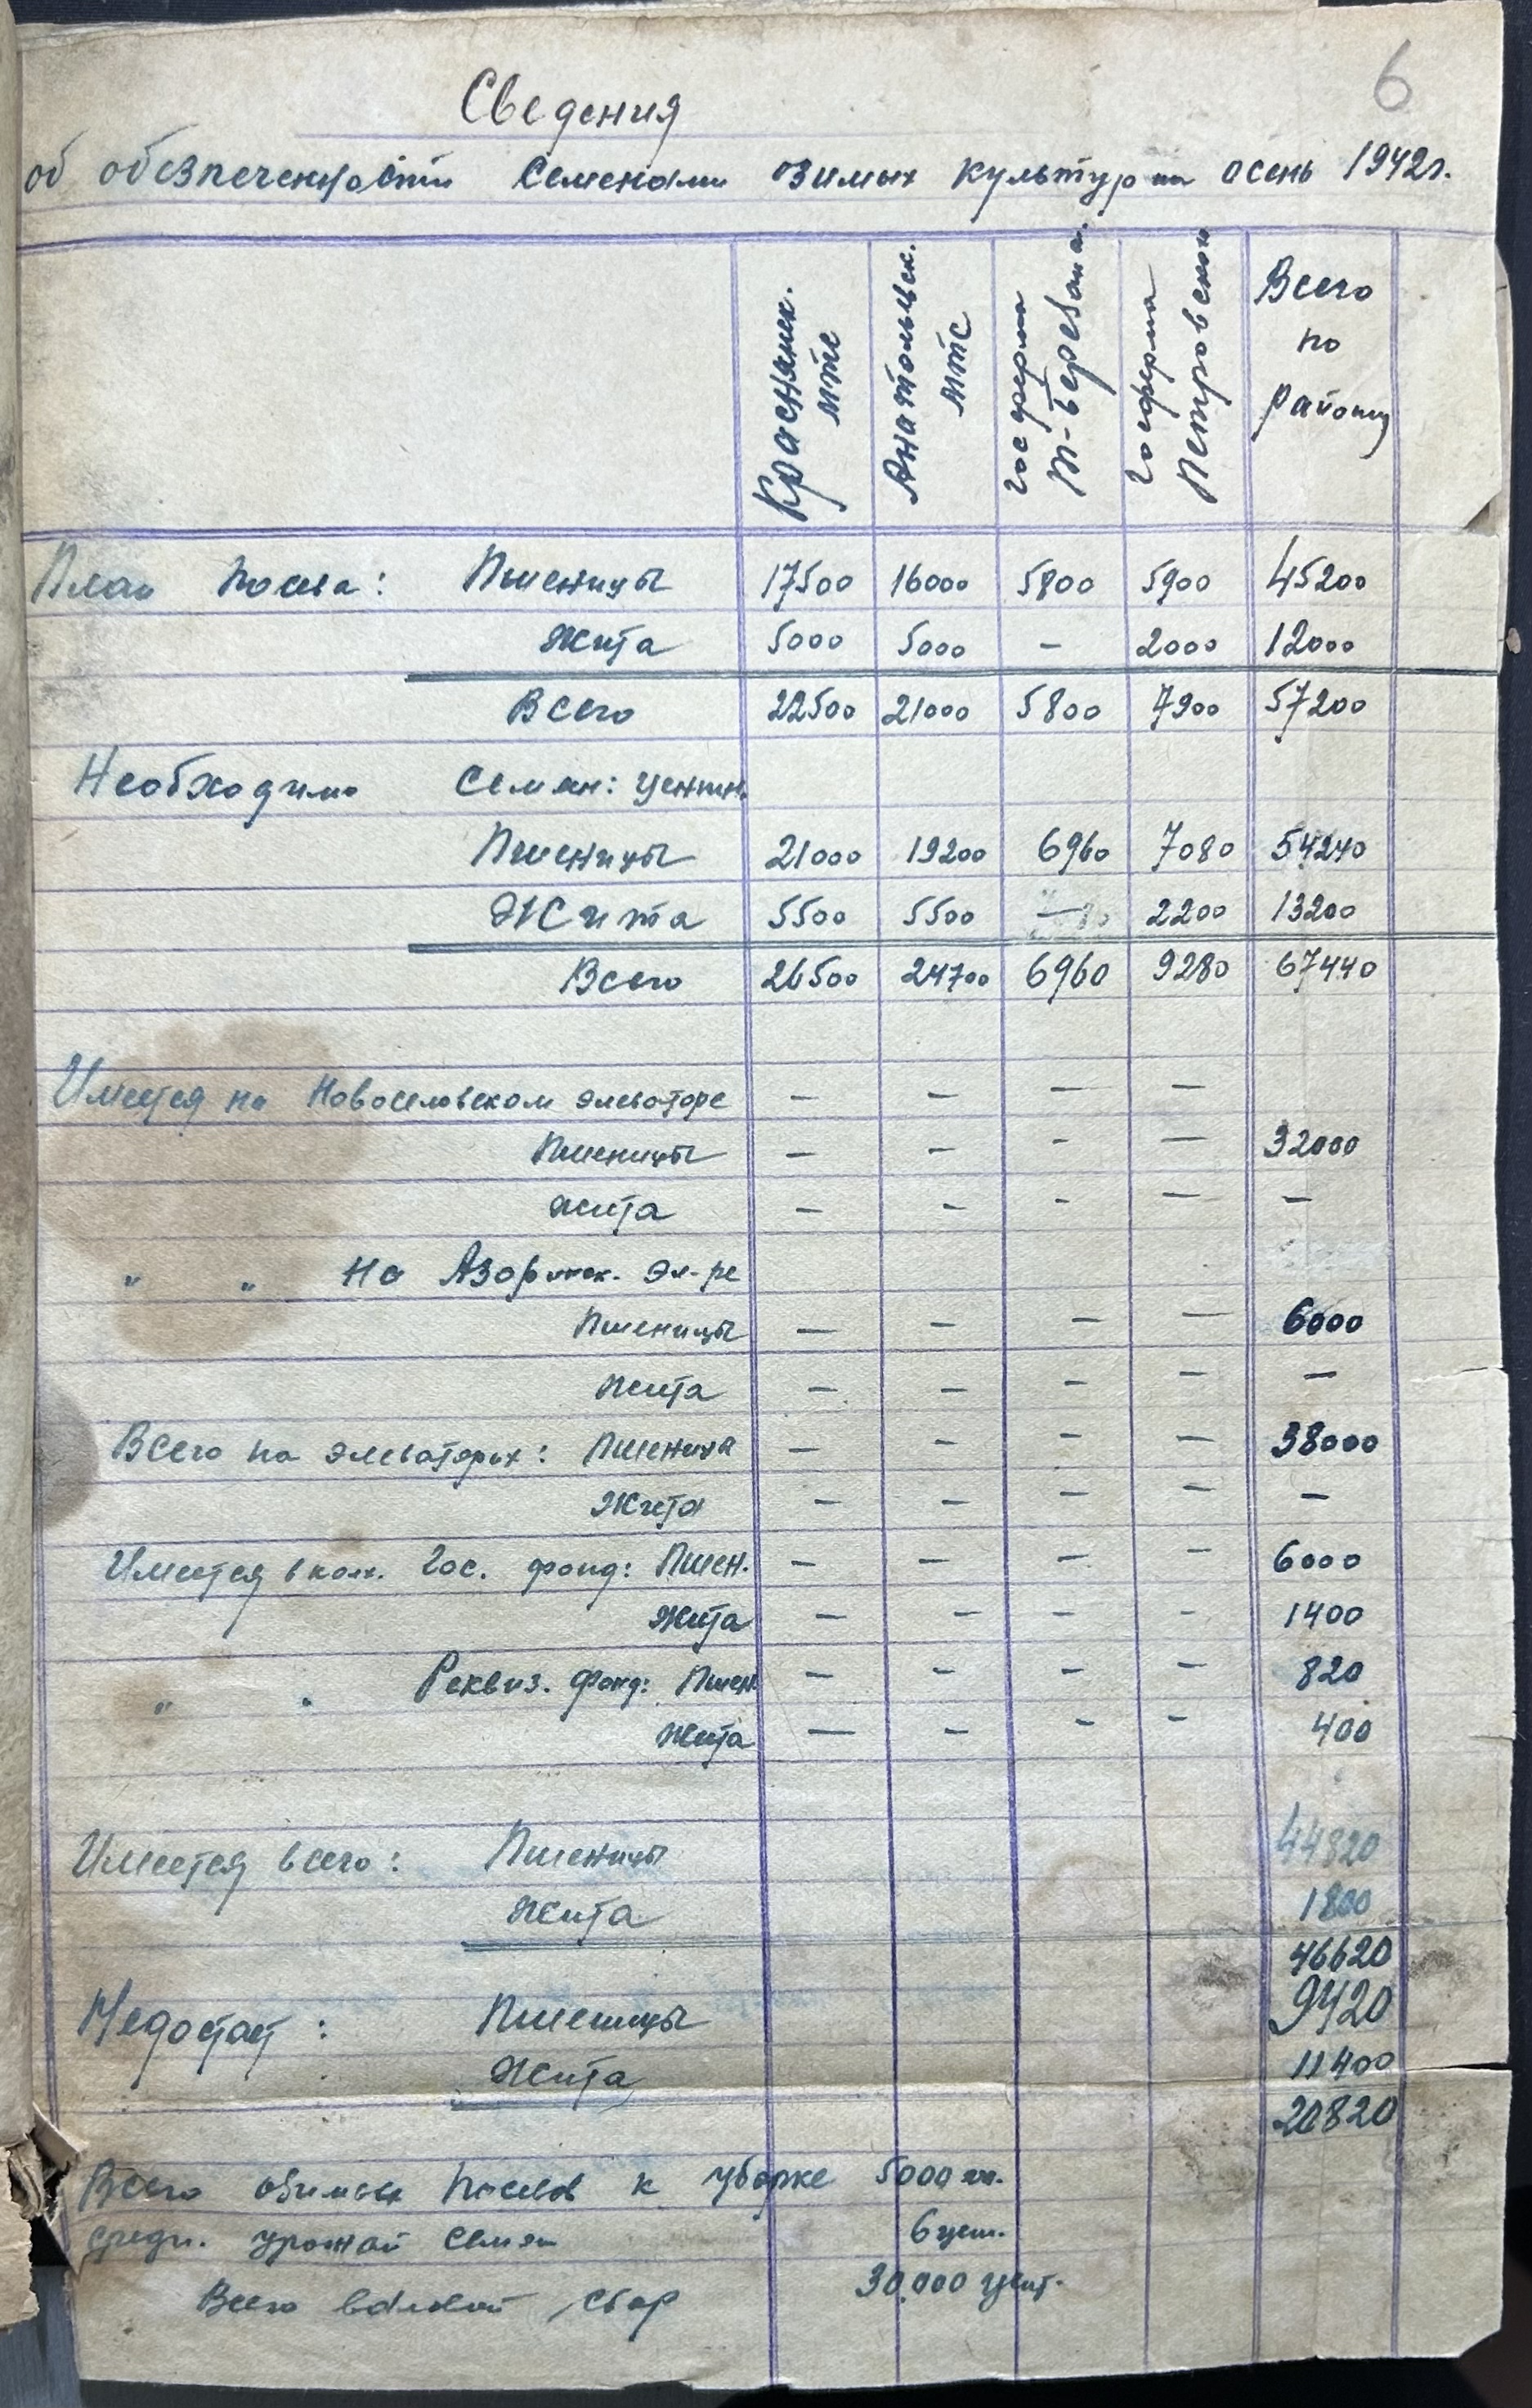 6
Сведения
об обезпеченности семенами озимых культур на осень 1942г.
Краснянск. мтс
Анатольевск. мтс
госферма Т-Березанка.
госферма Петровская
Всего по району
План посева: Пшеницы 17500 16000 5800 5900 45200
Жита 5000 5000 – 2000 12000
Всего 22500 21000 5800 7900 57200
Необходимо Семян: центн.
Пшеницы 21000 19200 6960 7080 54240
Жита 5500 5500 – 2200 13200
Всего 26500 24700 6960 9280 67440
Имеется на Новоселовском элеваторе – – – –
Пшеницы – – – – 32000
жита – – – – –
" " на эл-ре
Пшеницы – – – – 6000
жита – – – – –
Всего на элеваторах: пшеница – – – – 38000
Жита – – – – –
Имеется в колх. Гос. фонд: Пшен. – – – – 6000
Жита – – – – 1400
" " Реквиз. фонд: Пшен. – – – – 820
Жита – – – – 400
Имеется всего: Пшеницы 44820
жита 1800
46620
Недостает: Пшеницы 9420
Жита 11400
20820
Всего озимых посевов к уборке 5000 га.
средн. урожай семян 6 цент.
Всего валовой сбор 30.000 цент.